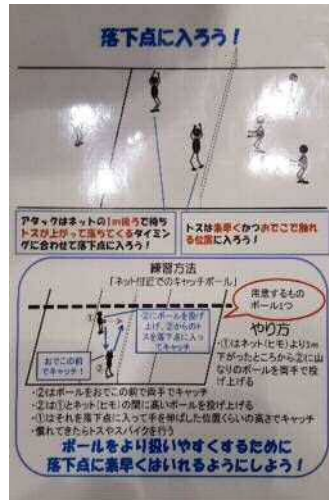 落下点に入ろう！
アタックはネットの1m後ろで待ち
トスが上がって落ちてくるタイミン
グに合わせて落下点に入ろう！
トスは素早くかつおでこで触れ
る位置に入ろう！
練習方法
「ネット付近でのキャッチボール」
用意するもの
ボール1つ
①
②にボールを投げ
上げ、②からのト
スを落下点に入っ
てキャッチ
おでこの前
でキャッチ！
②
やり方
・①はネット(ヒモ)より3m
下がったところから②に山
なりのボールを両手で投
げ上げる
・②はボールをおでこの前で両手でキャッチ
・②は①とネット(ヒモ)の間に高いボールを投げ上げる
・①はそれを落下点に入って手を伸ばした位置くらいの高さでキャッチ
・慣れてきたらトスやスパイクを行う
ボールをより扱いやすくするために
落下点に素早くはいれるようにしよう！